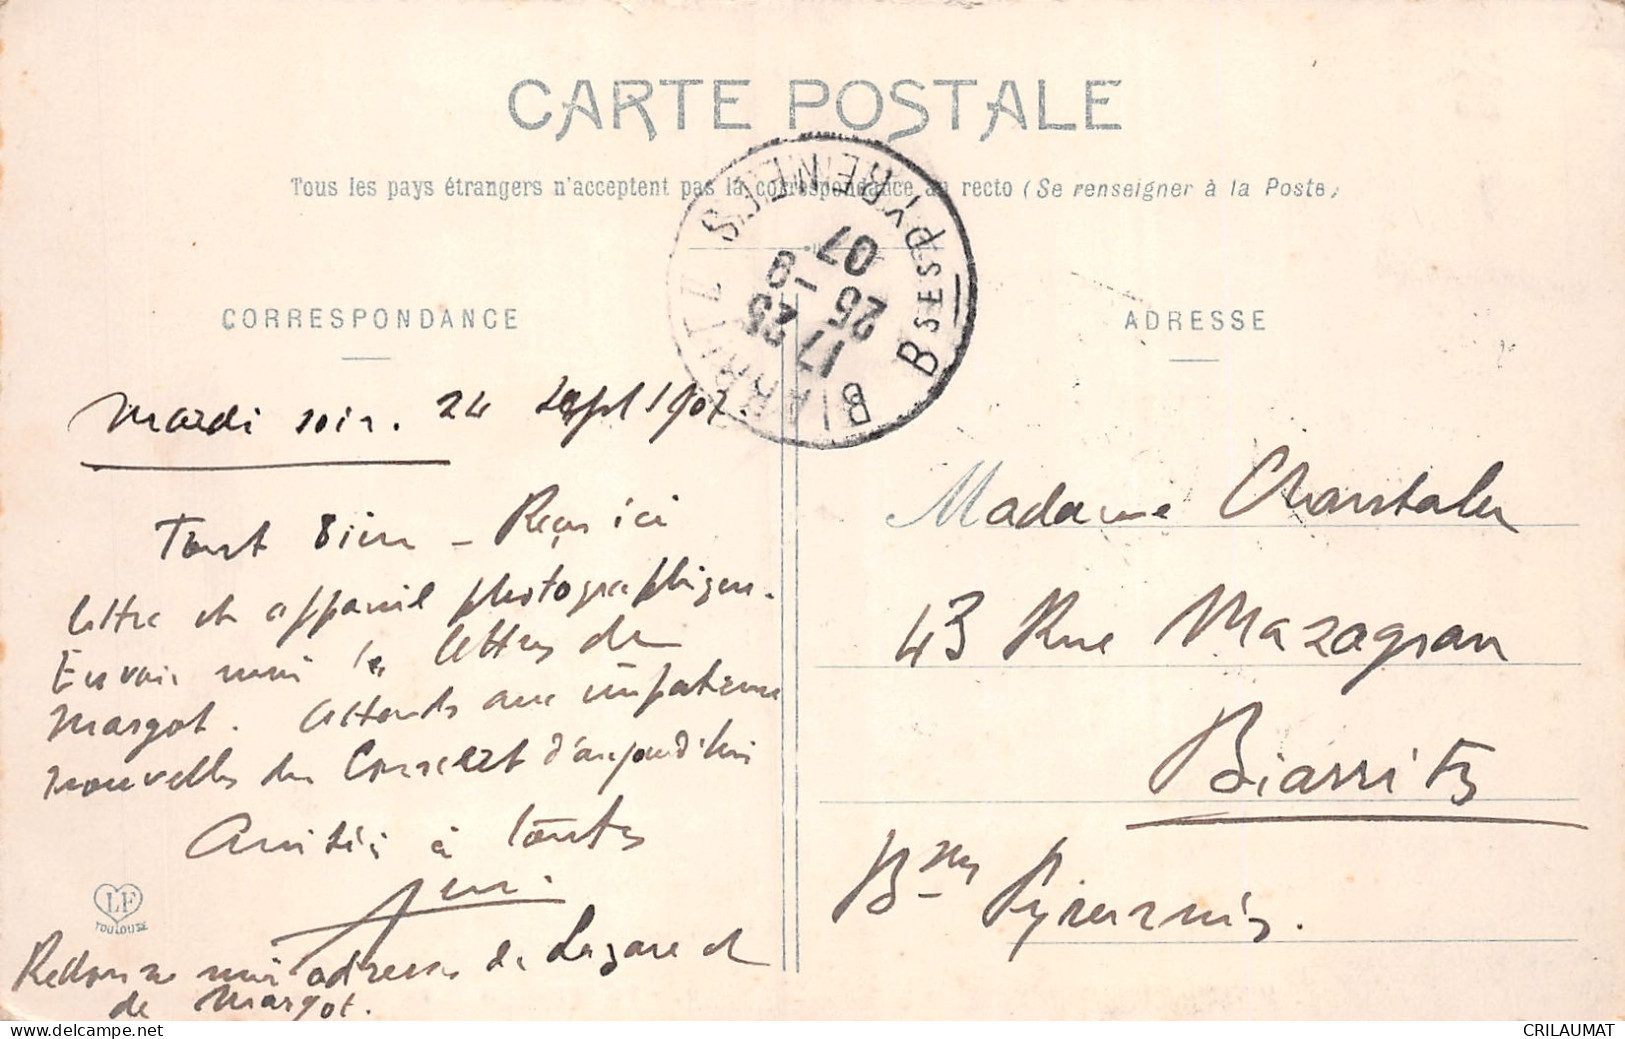 CARTE POSTALE
Tous les pays étrangers n'acceptent pas la correspondance au recto (Se renseigner à la Poste)
BIARRITZ
Bses PYRENEES
17 25
25 - 9
07
CORRESPONDANCE
ADRESSE
Mardi soir. 24 Sept 1907.
Tout bien - Reçu ici
lettre et appareil photographique.
Envoie moi les lettres de
Margot. Attends avec impatience
nouvelles du Concert d'aujourd'hui
Amitiés à toutes
LF
TOULOUSE
Redonne moi adresses de Lazare et
de Margot.
Madame
43 Rue Mazagran
Biarritz
Bses Pyrénées.
CRILAUMAT